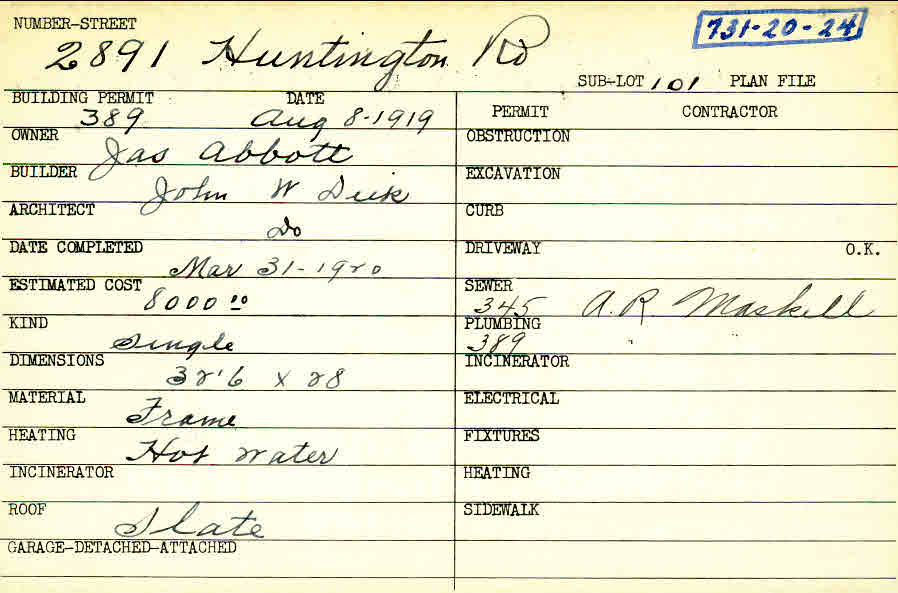 NUMBER-STREET
2891 Huntington Rd
731-20-24
SUB-LOT 101 PLAN FILE
BUILDING PERMIT DATE
389 Aug 8-1919
OWNER
Jas Abbott
BUILDER
John W Deik
ARCHITECT
Do
DATE COMPLETED
Mar 31-1920
ESTIMATED COST
8000 00
KIND
Single
DIMENSIONS
32'6 x 28
MATERIAL
Frame
HEATING
Hot water
INCINERATOR
ROOF
Slate
GARAGE-DETACHED-ATTACHED
PERMIT CONTRACTOR
OBSTRUCTION
EXCAVATION
CURB
DRIVEWAY O.K.
SEWER
345 A.R. Maskell
PLUMBING
389 "
INCINERATOR
ELECTRICAL
FIXTURES
HEATING
SIDEWALK